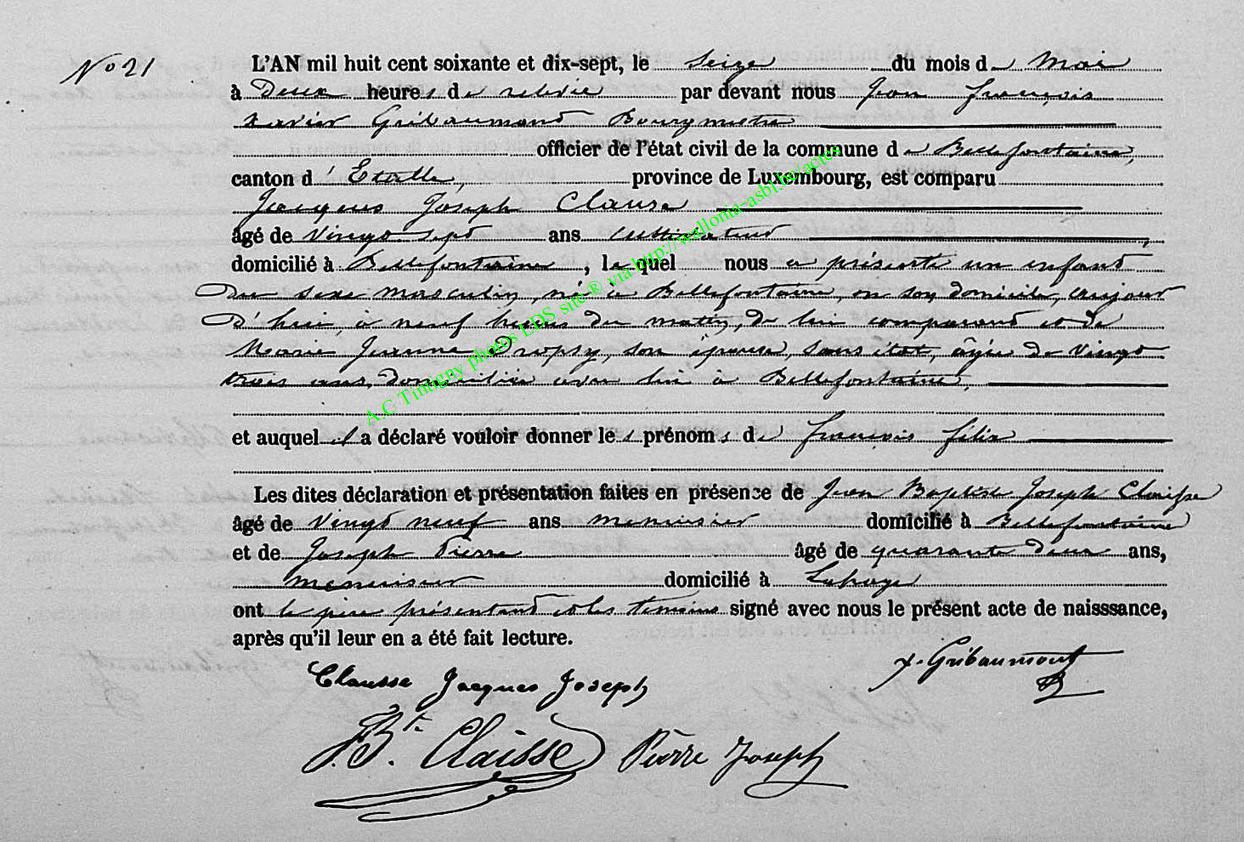 N° 21
L'AN mil huit cent soixante et dix-sept, le seize du mois de Mai
à deux heures de relevée par devant nous Jean François
Xavier Gribaumont Bourgmestre
officier de l'état civil de la commune de Bellefontaine,
canton d'Etalle, province de Luxembourg, est comparu
Jacques Joseph Clausse
âgé de Vingt sept ans cultivateur
domicilié à Bellefontaine, lequel nous a présenté un enfant
du sexe masculin, né à Bellefontaine, en son domicile, aujour
d'hui, à neuf heures du matin, de lui comparant et de
Marie Jeanne Dropsy, son épouse, sans état, âgée de Vingt
trois ans, domiciliée avec lui à Bellefontaine,
et auquel il a déclaré vouloir donner les prénoms de françois félix
Les dites déclaration et présentation faites en présence de Jean Baptiste Joseph Claisse
âgé de Vingt neuf ans menuisier domicilié à Bellefontaine
et de Joseph Pierre âgé de quarante deux ans,
menuisier domicilié à Lahage
ont le père présentant et les témoins signé avec nous le présent acte de naisssance,
après qu'il leur en a été fait lecture.
Clausse Jacques Joseph
x. Gribaumont
J. Bte. Claisse Pierre Joseph
A.C Tintigny photos LDS site ® via http://wallonia-asbl.be/actes